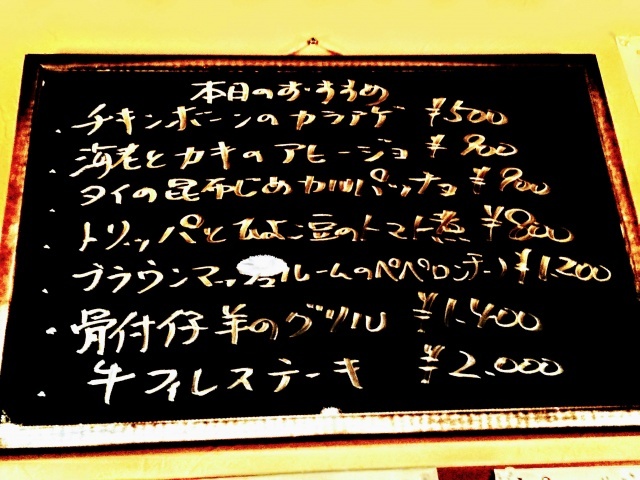 本日のおすすめ
・チキンボーンのカラアゲ ¥500
・海老とカキのアヒージョ ¥900
・タイの昆布じめカルパッチョ ¥900
・トリッパとひよこ豆のトマト煮 ¥800
・ブラウンマッシュルームのペペロンチーノ ¥1.200
・骨付仔羊のグリル ¥1.400
・牛フィレステーキ ¥2.000